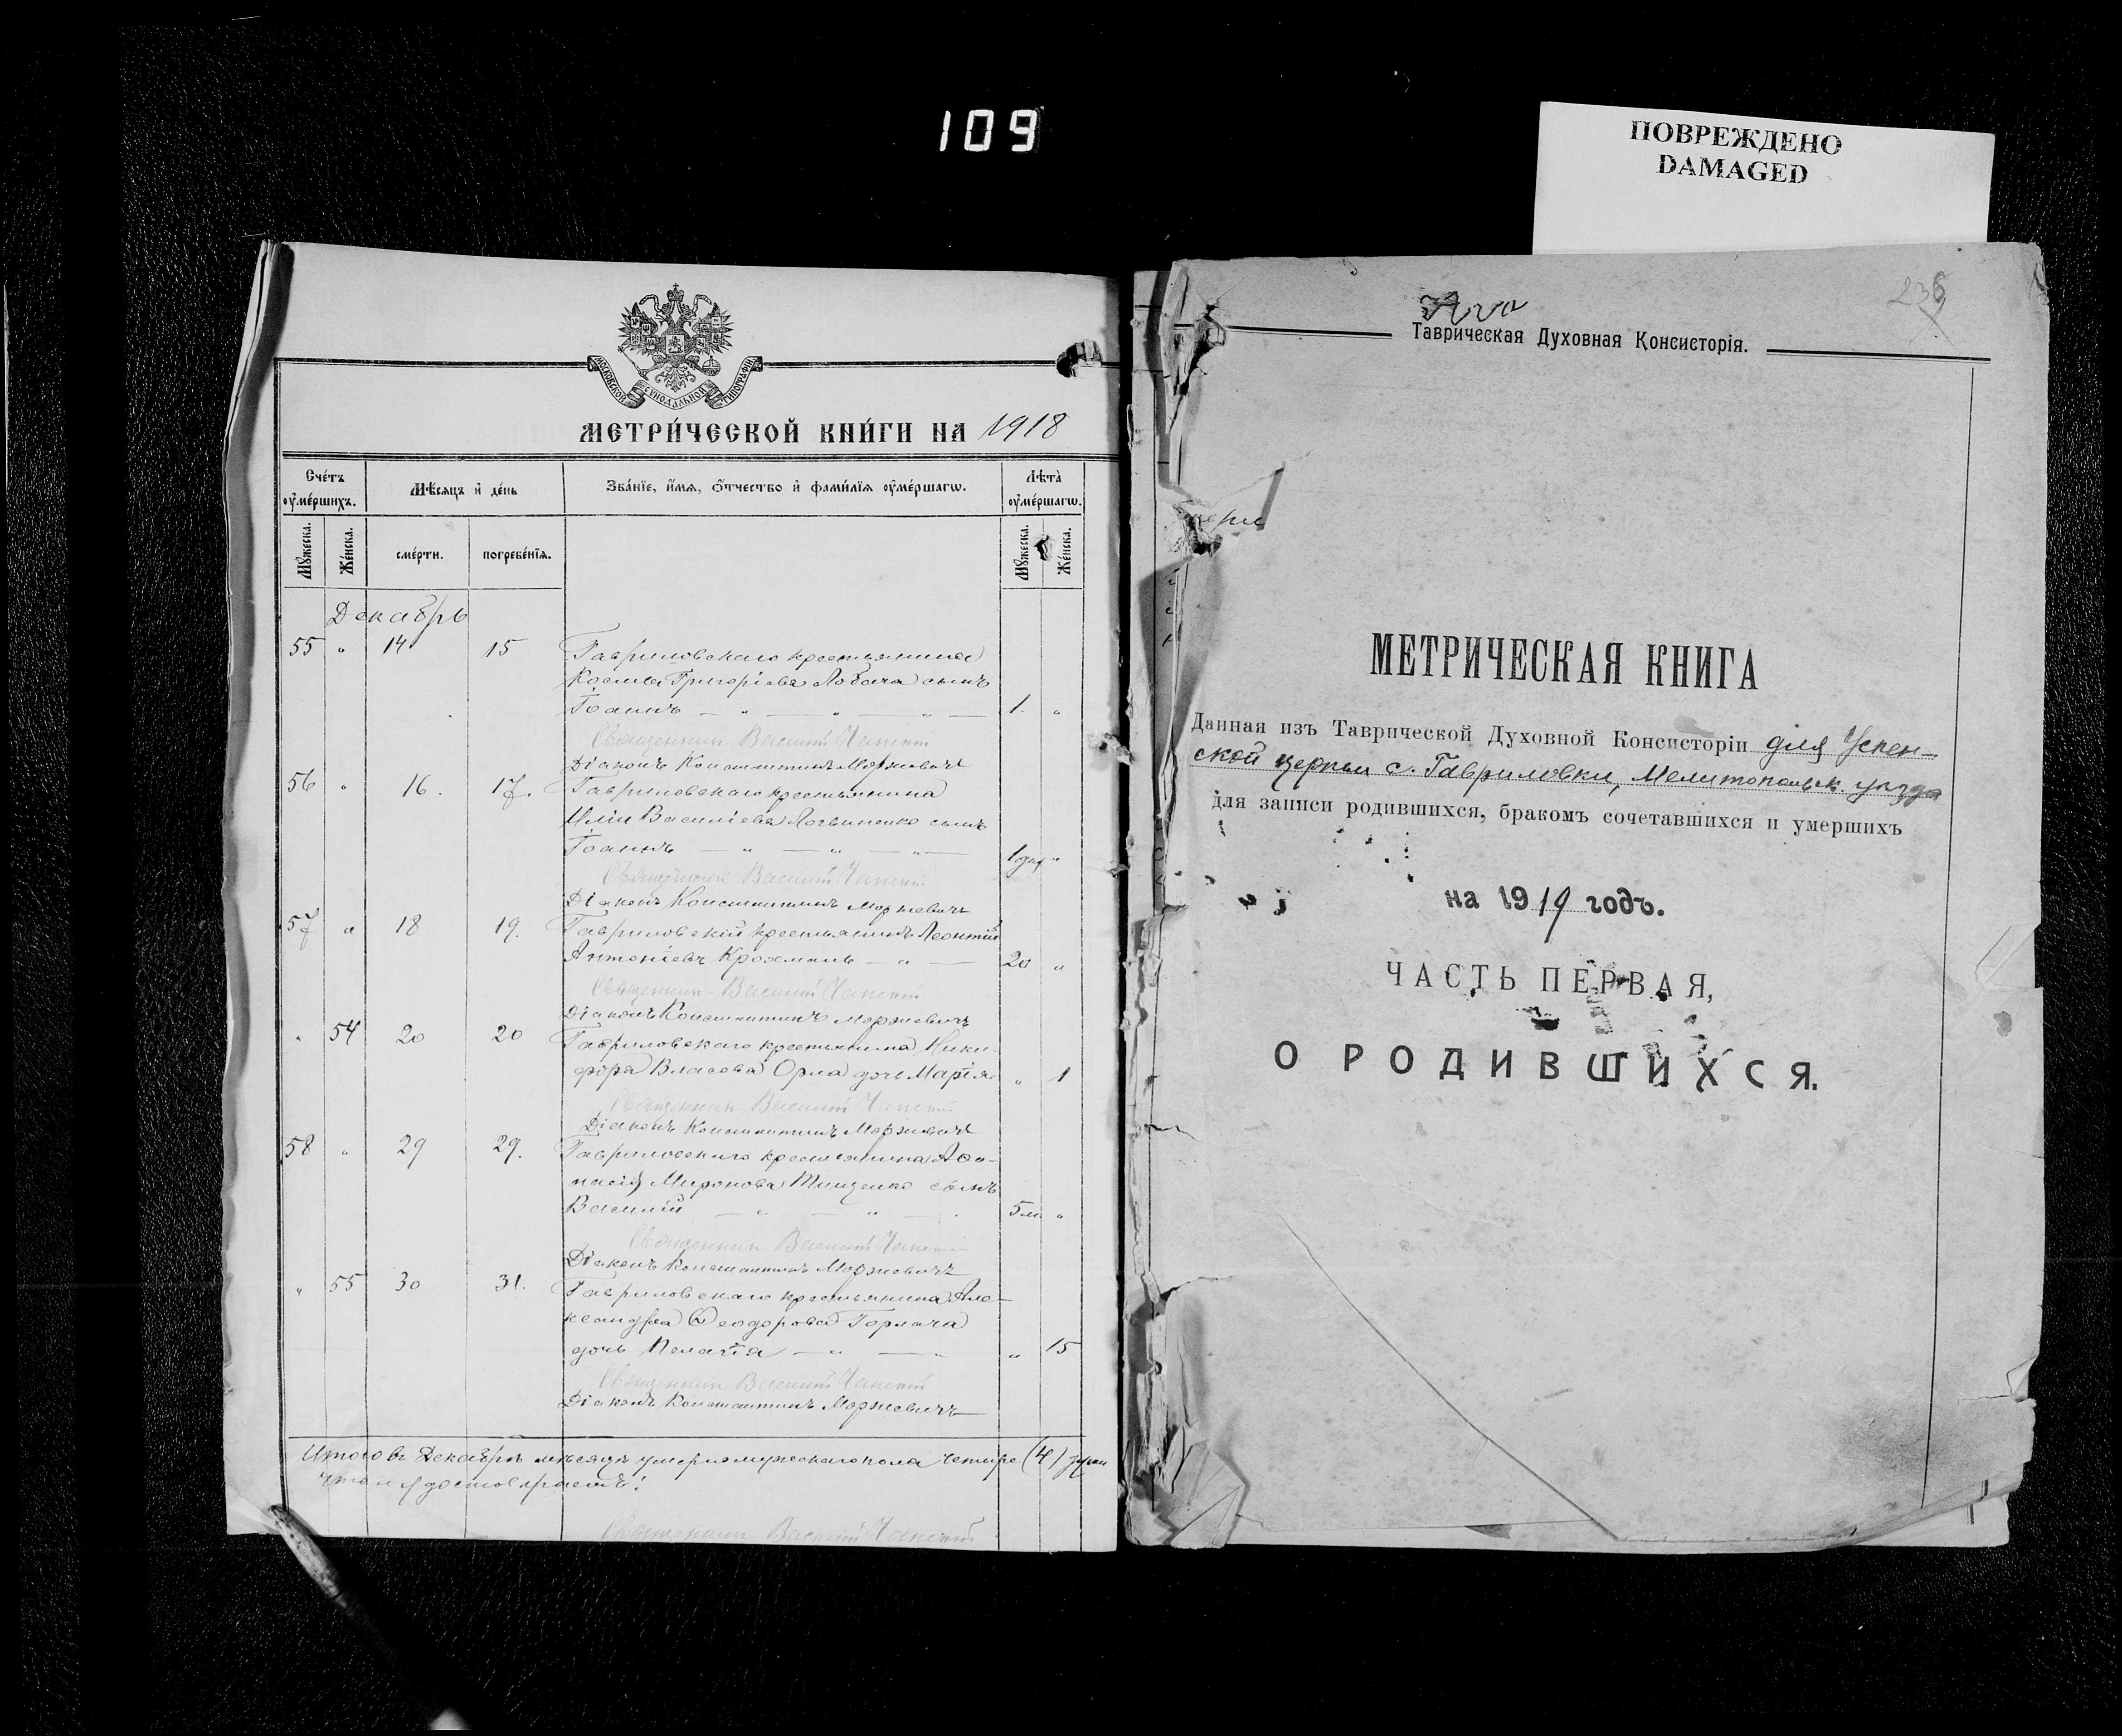 109
ПОВРЕЖДЕНО
DAMAGED
МОСКОВСКОЙ СѴНОДАЛЬНОЙ ТИПОГРАФІИ
МЕТРИ́ЧЕСКОЙ КНИ́ГИ НА 1918
Сче́тъ оу҆ме́ршихъ.
Мѣ́сяцъ и҆ де́нь
Зва́нїе, и҆́мѧ, ѻ҆́тчество и҆ фами́лїѧ оу҆ме́ршагѡ.
Лѣ́та оу҆ме́ршагѡ.
Мꙋ́жеска.
Же́нска.
сме́рти.
погребе́нїѧ.
Мꙋ́жеска.
Же́нска.
Декабрь
55 " 14 15 Гавриловскаго крестьянина
Космы Григоріева Лобача сынъ
Іоаннъ — " — " — " — 1. "
Священник Василій
Діаконъ Константинъ Моржевичъ
56 " 16. 17. Гавриловскаго крестьянина
Иліи Василіева Логвиненко сынъ
Іоаннъ — " — " — " — 1 дня "
Священник Василій
Діаконъ Константинъ Моржевичъ
57 " 18 19. Гавриловскій крестьянинъ Леонтій
Антоніевъ — " — 20 "
Священник Василій
Діаконъ Константинъ Моржевичъ
" 54 20 20 Гавриловскаго крестьянина Ники-
фора Власова Орла дочь Марія " 1
Священник Василій
Діаконъ Константинъ Моржевичъ
58 " 29 29. Гавриловскаго крестьянина Аѳа-
насія Миронова Тищенко сынъ
Василій — " — " — . 5 м. "
Священник Василій
Діаконъ Константинъ Моржевичъ
" 55 30 31. Гавриловскаго крестьянина Але-
ксандра Ѳеодорова Горлача
дочь Пелагія — " — " " 15
Священник Василій
Діаконъ Константинъ Моржевичъ
Итого въ Декабрѣ мѣсяцѣ умерло мужескаго пола четыре (4)
Священник Василій
236
Таврическая Духовная Консисторія.
МЕТРИЧЕСКАЯ КНИГА
Данная изъ Таврической Духовной Консисторіи для Успен-
ской церкви с. Гавриловки, Мелитопольск. уѣзда
для записи родившихся, бракомъ сочетавшихся и умершихъ
на 1919 годъ.
ЧАСТЬ ПЕРВАЯ,
О РОДИВШИХСЯ.